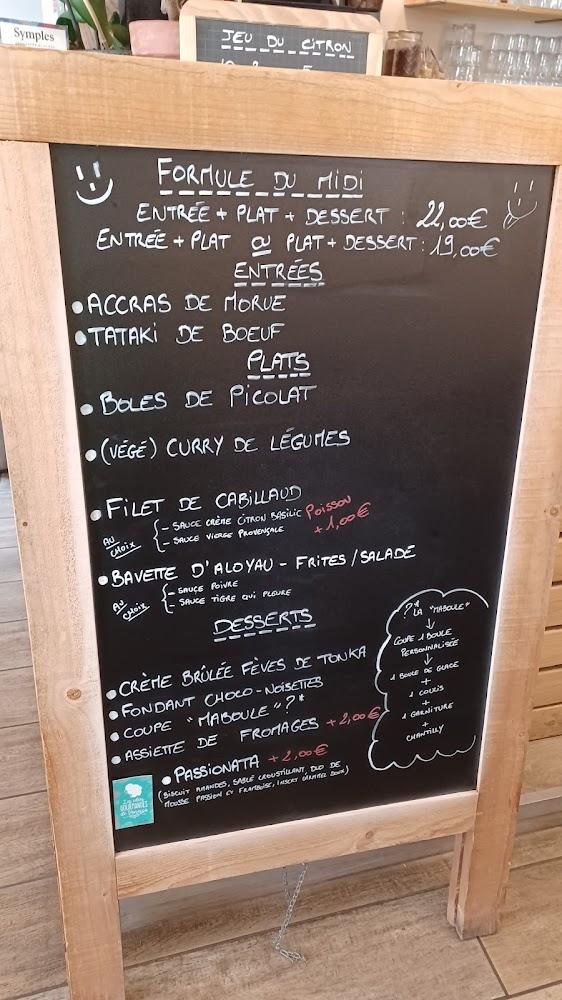 Symples
JEU DU CITRON
FORMULE DU MIDI
ENTRÉE + PLAT + DESSERT : 22,00€
ENTRÉE + PLAT OU PLAT + DESSERT : 19,00€
ENTRÉES
• ACCRAS DE MORUE
• TATAKI DE BOEUF
PLATS
• BOLES DE PICOLAT
• (VÉGÉ) CURRY DE LÉGUMES
• FILET DE CABILLAUD
AU CHOIX { - SAUCE CRÈME CITRON BASILIC
- SAUCE VIERGE PROVENÇALE
POISSON
+ 1,00€
• BAVETTE D'ALOYAU - FRITES / SALADE
AU CHOIX { - SAUCE POIVRE
- SAUCE TIGRE QUI PLEURE
DESSERTS
• CRÈME BRÛLÉE FÈVES DE TONKA
• FONDANT CHOCO-NOISETTES
• COUPE "MABOULE" ?*
• ASSIETTE DE FROMAGES + 2,00€
• PASSIONATA + 2,00€
(BISCUIT AMANDES, SABLÉ CROUSTILLANT, DUO DE
MOUSSE PASSION ET FRAMBOISE, INSERT CARAMEL DOUX)
?* LA "MABOULE"
↓
COUPE 1 BOULE
PERSONNALISÉE
↓
1 BOULE DE GLACE
+
1 COULIS
+
1 GARNITURE
+
CHANTILLY
GOURMANDES